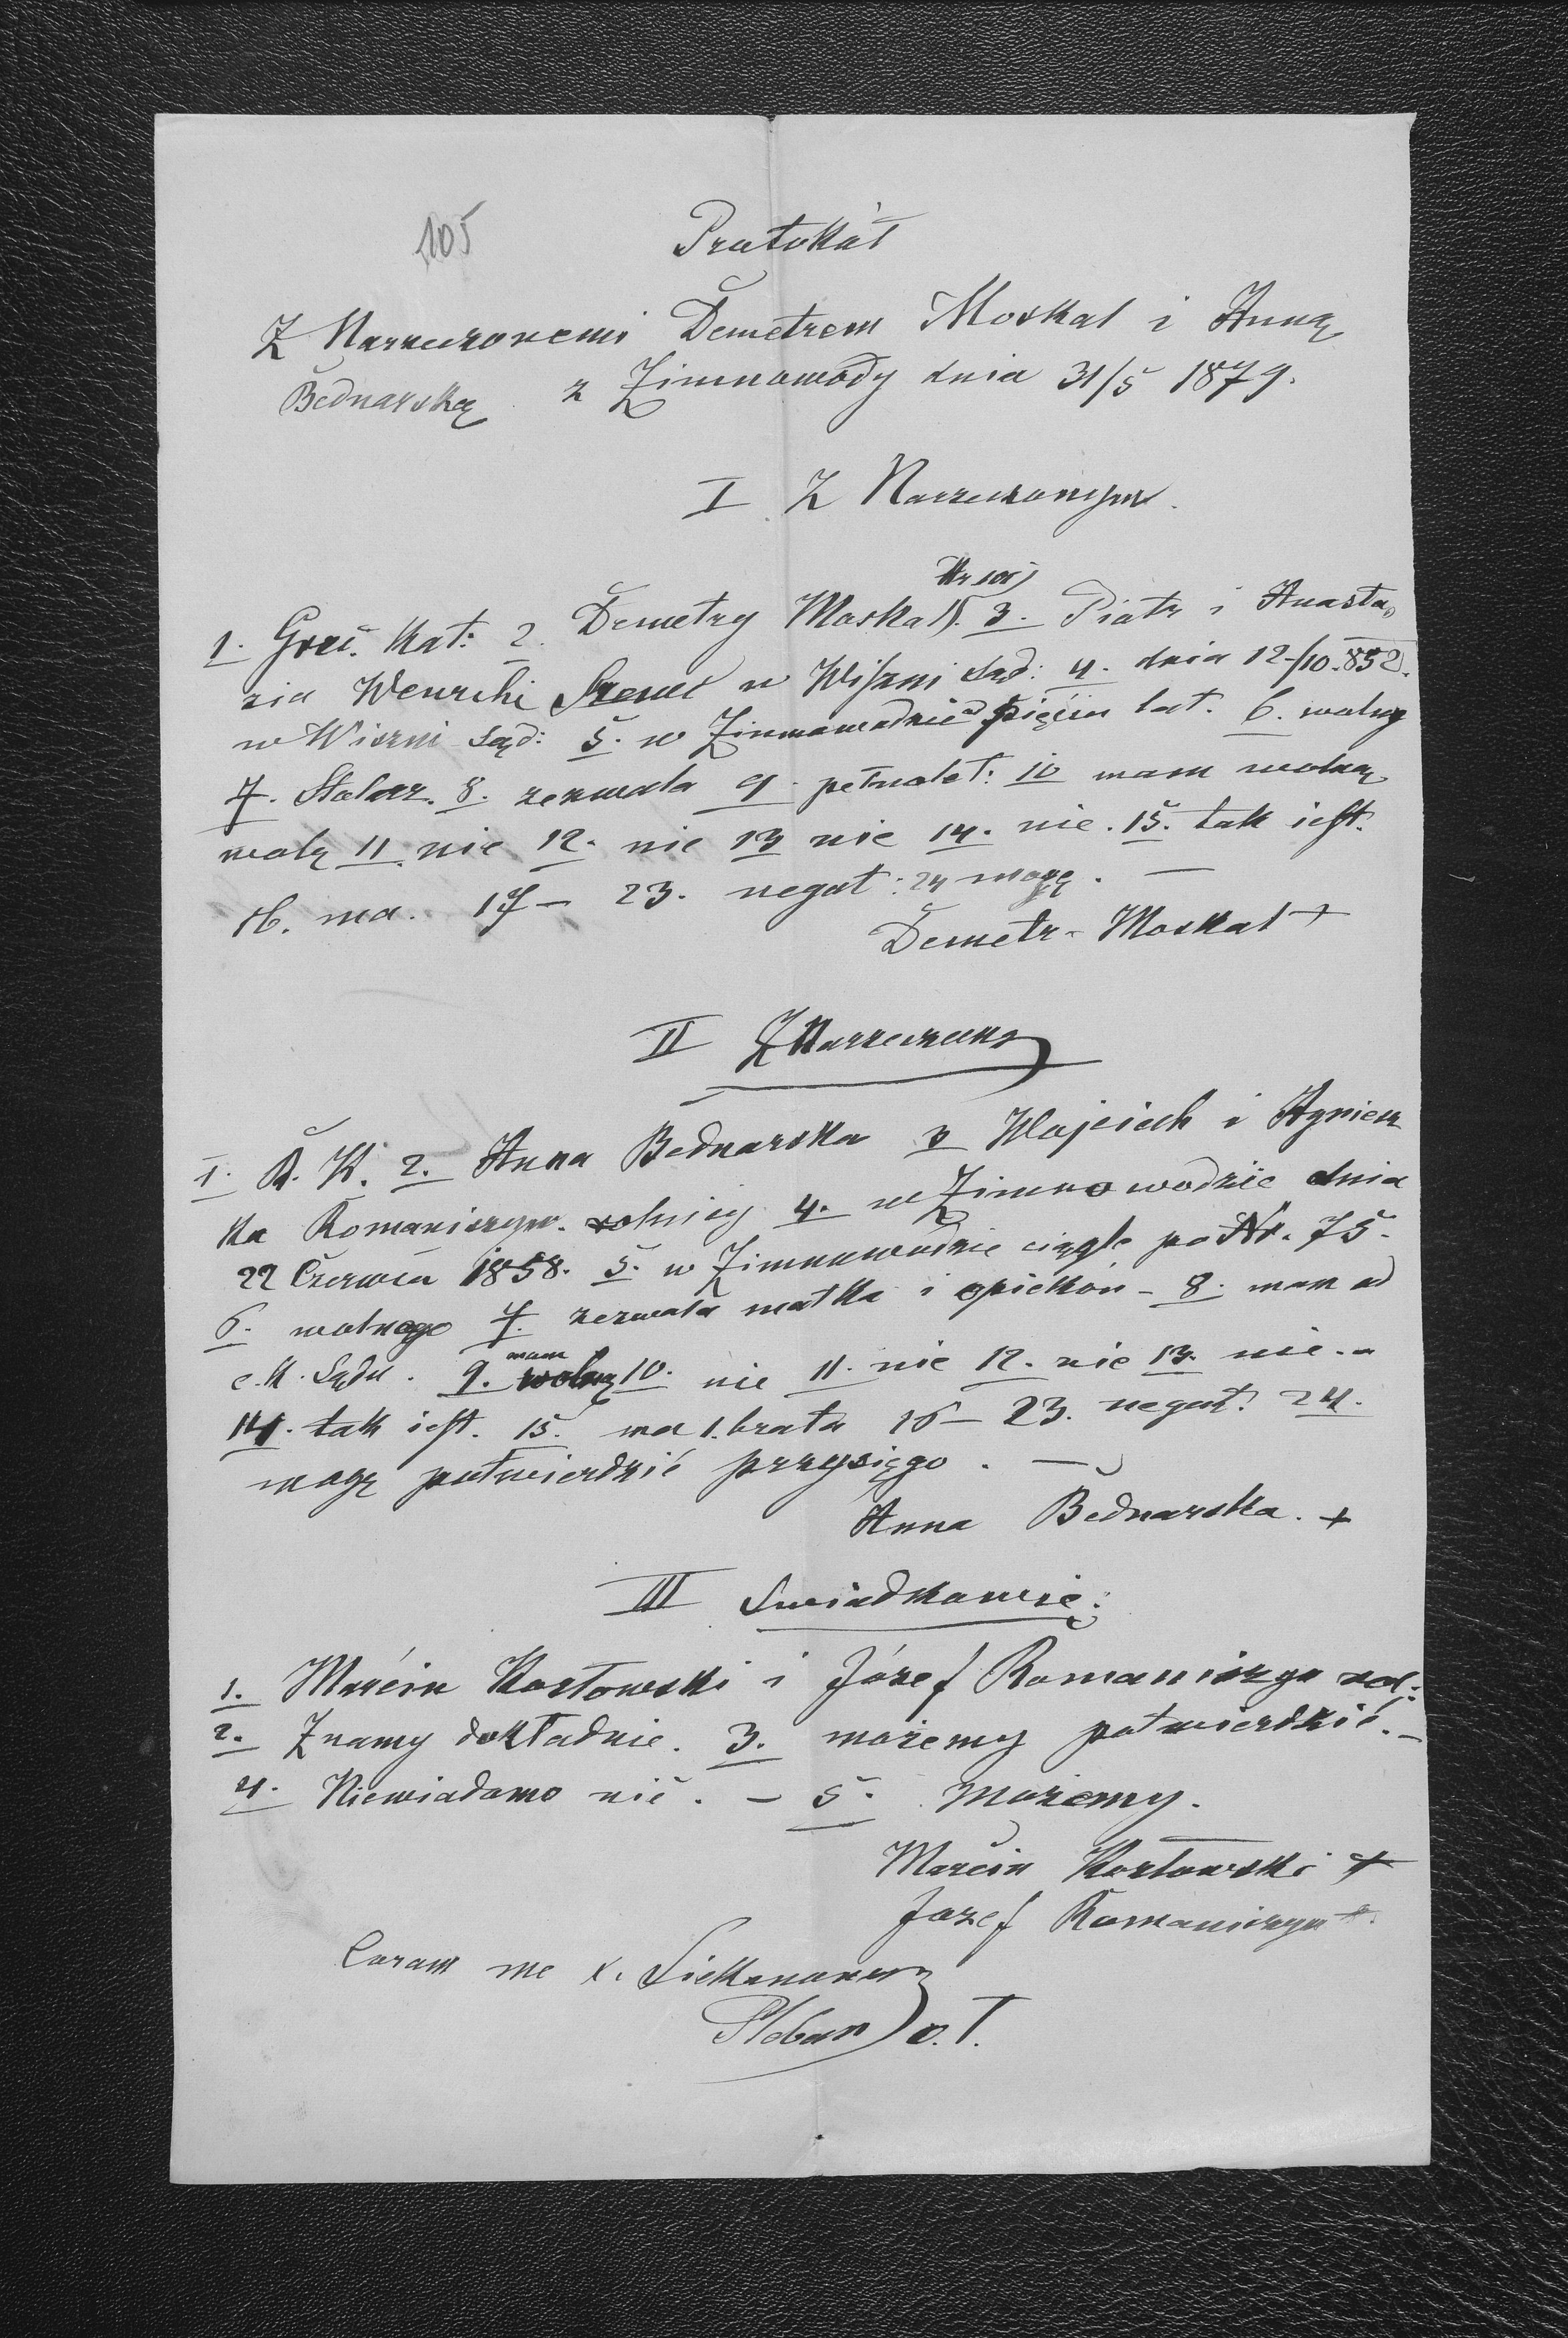 105
Protokół
Z Narzeczonemi Demetrem Moskal i Anną
Bednarską z Zimnowody dnia 31/5 1879.
I Z Narzeczonym.
Nr 105)
1. Grec. Kat: 2. Demetry Moskal). 3. Piotr i Anasta„
zia Wenrchi Szewc w Wiszni Sąd: 4. dnia 12/10.852.
w Wiszni Sąd: 5. w Zimnowodzie pięciu lat. 6. wolny
7. Stolarz. 8. zezwala 9. pełnolet: 10 mam wolną
wolę 11. nie 12. nie 13 nie 14. nie. 15. tak jest.
16. ma. 17 – 23. negat: 24 mogę. —
Demetr - Moskal +
II Z Narzeczoną
1. R. K. 2. Anna Bednarska 3 Wojciech i Agniesz
ka Romaniszyn. rolnicy 4. w Zimnowodzie dnia
22 Czerwca 1858. 5. w Zimnowodzie ciągle po Nr. 75.
6. wolnego 7. zezwala matka i opiekon – 8. mam od
c. k. Sądu. 9. mam wolną 10. nie 11. nie 12. nie 13. nie. –
14. tak jest. 15. ma 1. brata 16 – 23. negat: 24.
mogę potwierdzić przysięgo. —
Anna Bednarska. +
III Swiadkowie:
1. Marcin Kozłowski i Józef Romaniszyn rol:
2. Znamy dokładnie. 3. możemy potwierdzić. –
4. Niewiadomo nic. – 5. możemy.
Marcin Kozłowski +
Jozef Romaniszyn +.
Coram me X.
Pleban o. T.